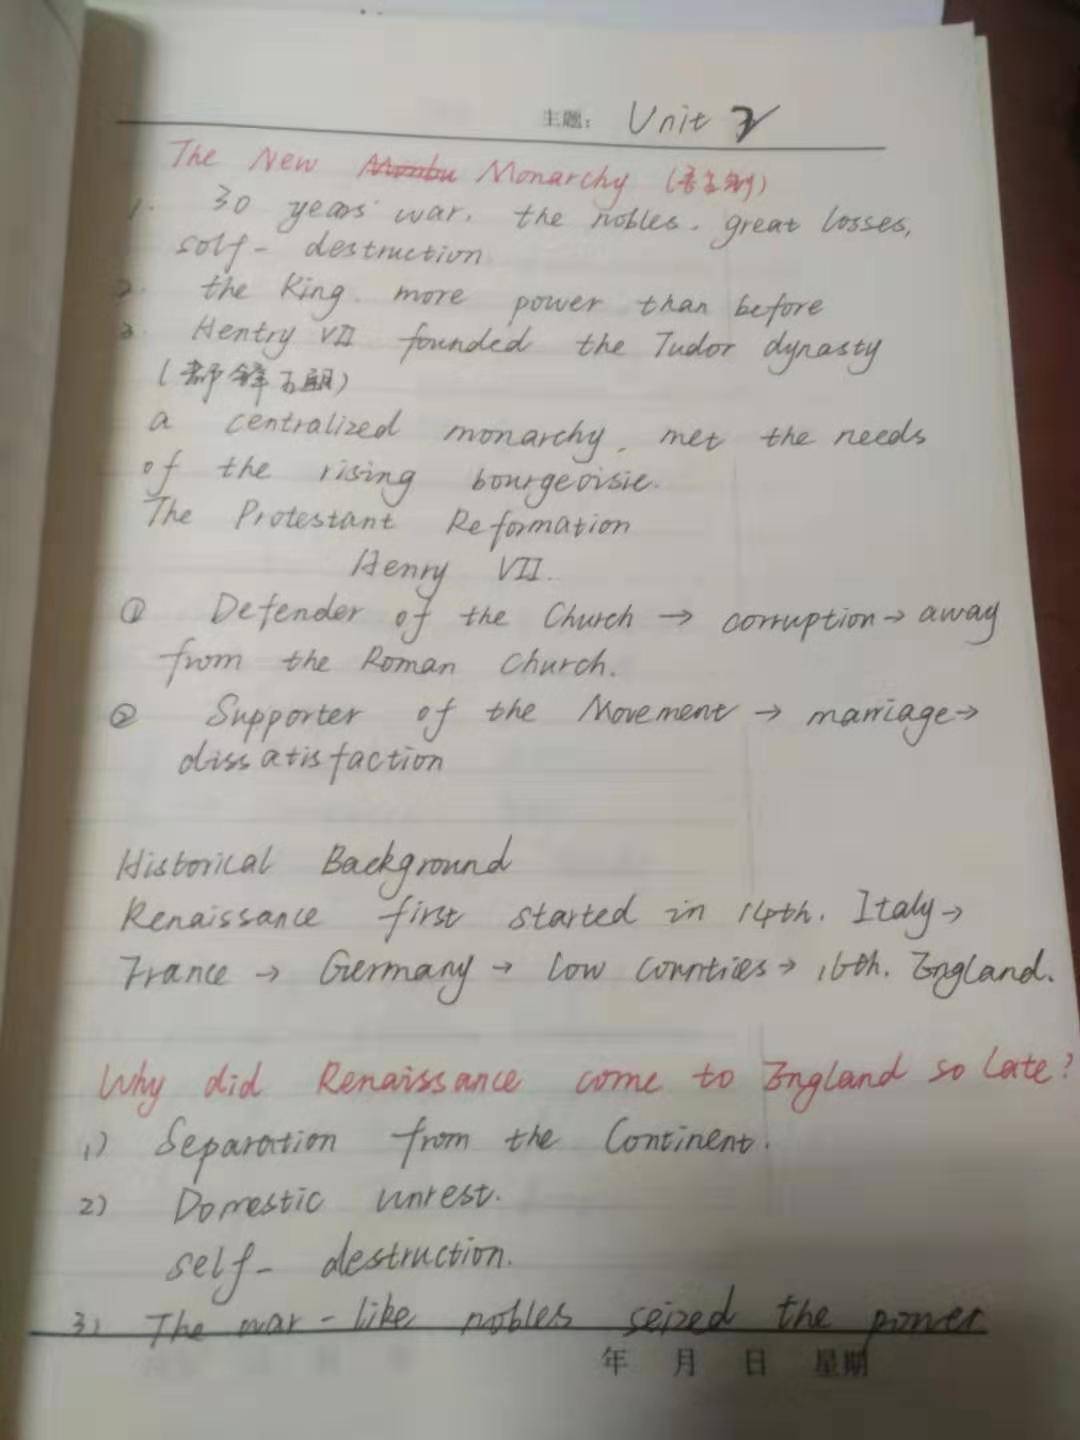 主题: Unit 2
The New Monarchy (君主制)
1. 30 years' war. the nobles. great losses,
self- destruction
2. the King. more power than before
3. Hentry VII founded the Tudor dynasty
(都铎王朝)
a centralized monarchy, met the needs
of the rising bourgeoisie.
The Protestant Reformation
Henry VII.
① Defender of the Church → corruption → away
from the Roman Church.
② Supporter of the Movement → marriage →
dissatisfaction
Historical Background
Renaissance first started in 14th. Italy →
France → Germany → Low Counties → 16th. England.
Why did Renaissance come to England so late?
1) Separation from the Continent.
2) Domestic unrest.
self- destruction.
3) The war-like nobles seized the power
年 月 日 星期